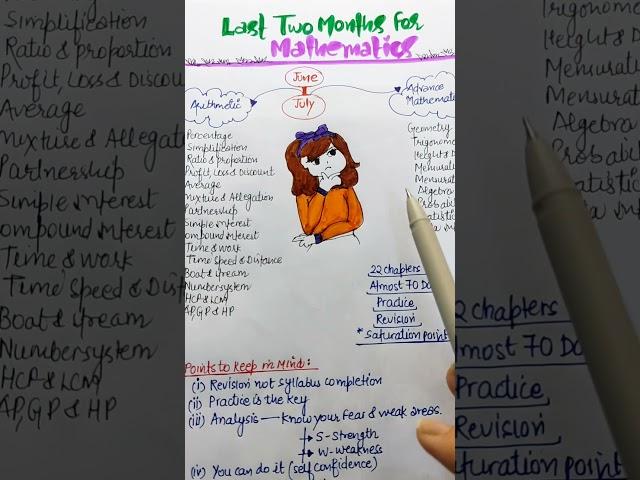 Last Two Months for
Mathematics
June
July
Arithmetic
Percentage
Simplification
Ratio & proportion
Profit, Loss & Discount
Average
Mixture & Allegation
Partnership
Simple interest
Compound interest
Time & work
Time Speed & Distance
Boat & Stream
Numbersystem
HCF & LCM
AP, GP & HP
Advance
Mathemat
Geometry
Trigonom
Height & D
Mensurat
Mensurat
Algebra
Probabil
tatistic
22 chapters
Almost 70 Da
Practice
Revision
* Saturation point
Points to keep in Mind:
(i) Revision not syllabus completion
(ii) Practice is the key
(iii) Analysis — Know your fear & weak areas.
S-Strength
W-weakness
(iv) You can do it (self confidence)
Simplification
Ratio & proportion
Profit, Loss & Discou
Average
Mixture & Allegation
Partnership
Simple interest
ompound interest
Time & work
Time Speed & Dist
Boat & Stream
Numbersystem
HCF & LCM
AP, GP & HP
Trigonome
Height & D
Mensuratio
Mensurat
Algebra
Probabil
tatistic
2 chapters
most 70 Da
Practice
Revision
aturation point